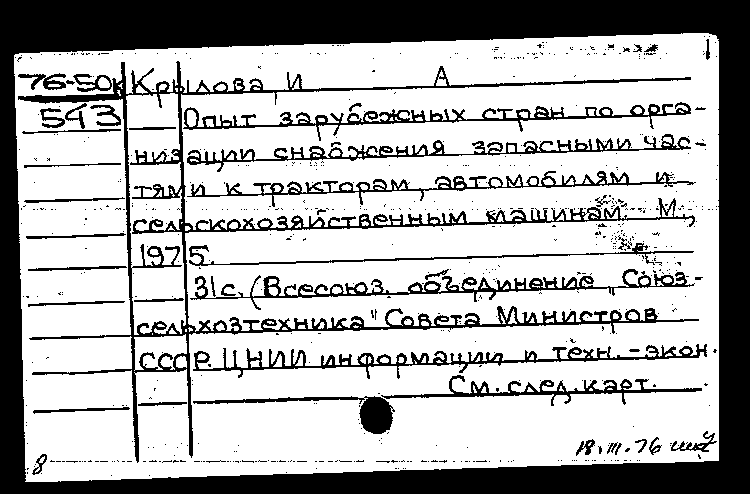 76-50к Крылова, И А
543 Опыт зарубежных стран по орга-
низации снабжения запасными час-
тями к тракторам, автомобилям и
сельскохозяйственным машинам. М.,
1975.
31с. (Всесоюз. объединение „Союз-
сельхозтехника" Совета Министров
СССР. ЦНИИ информации и техн.-экон.
См. след. карт.
18.III.76
8